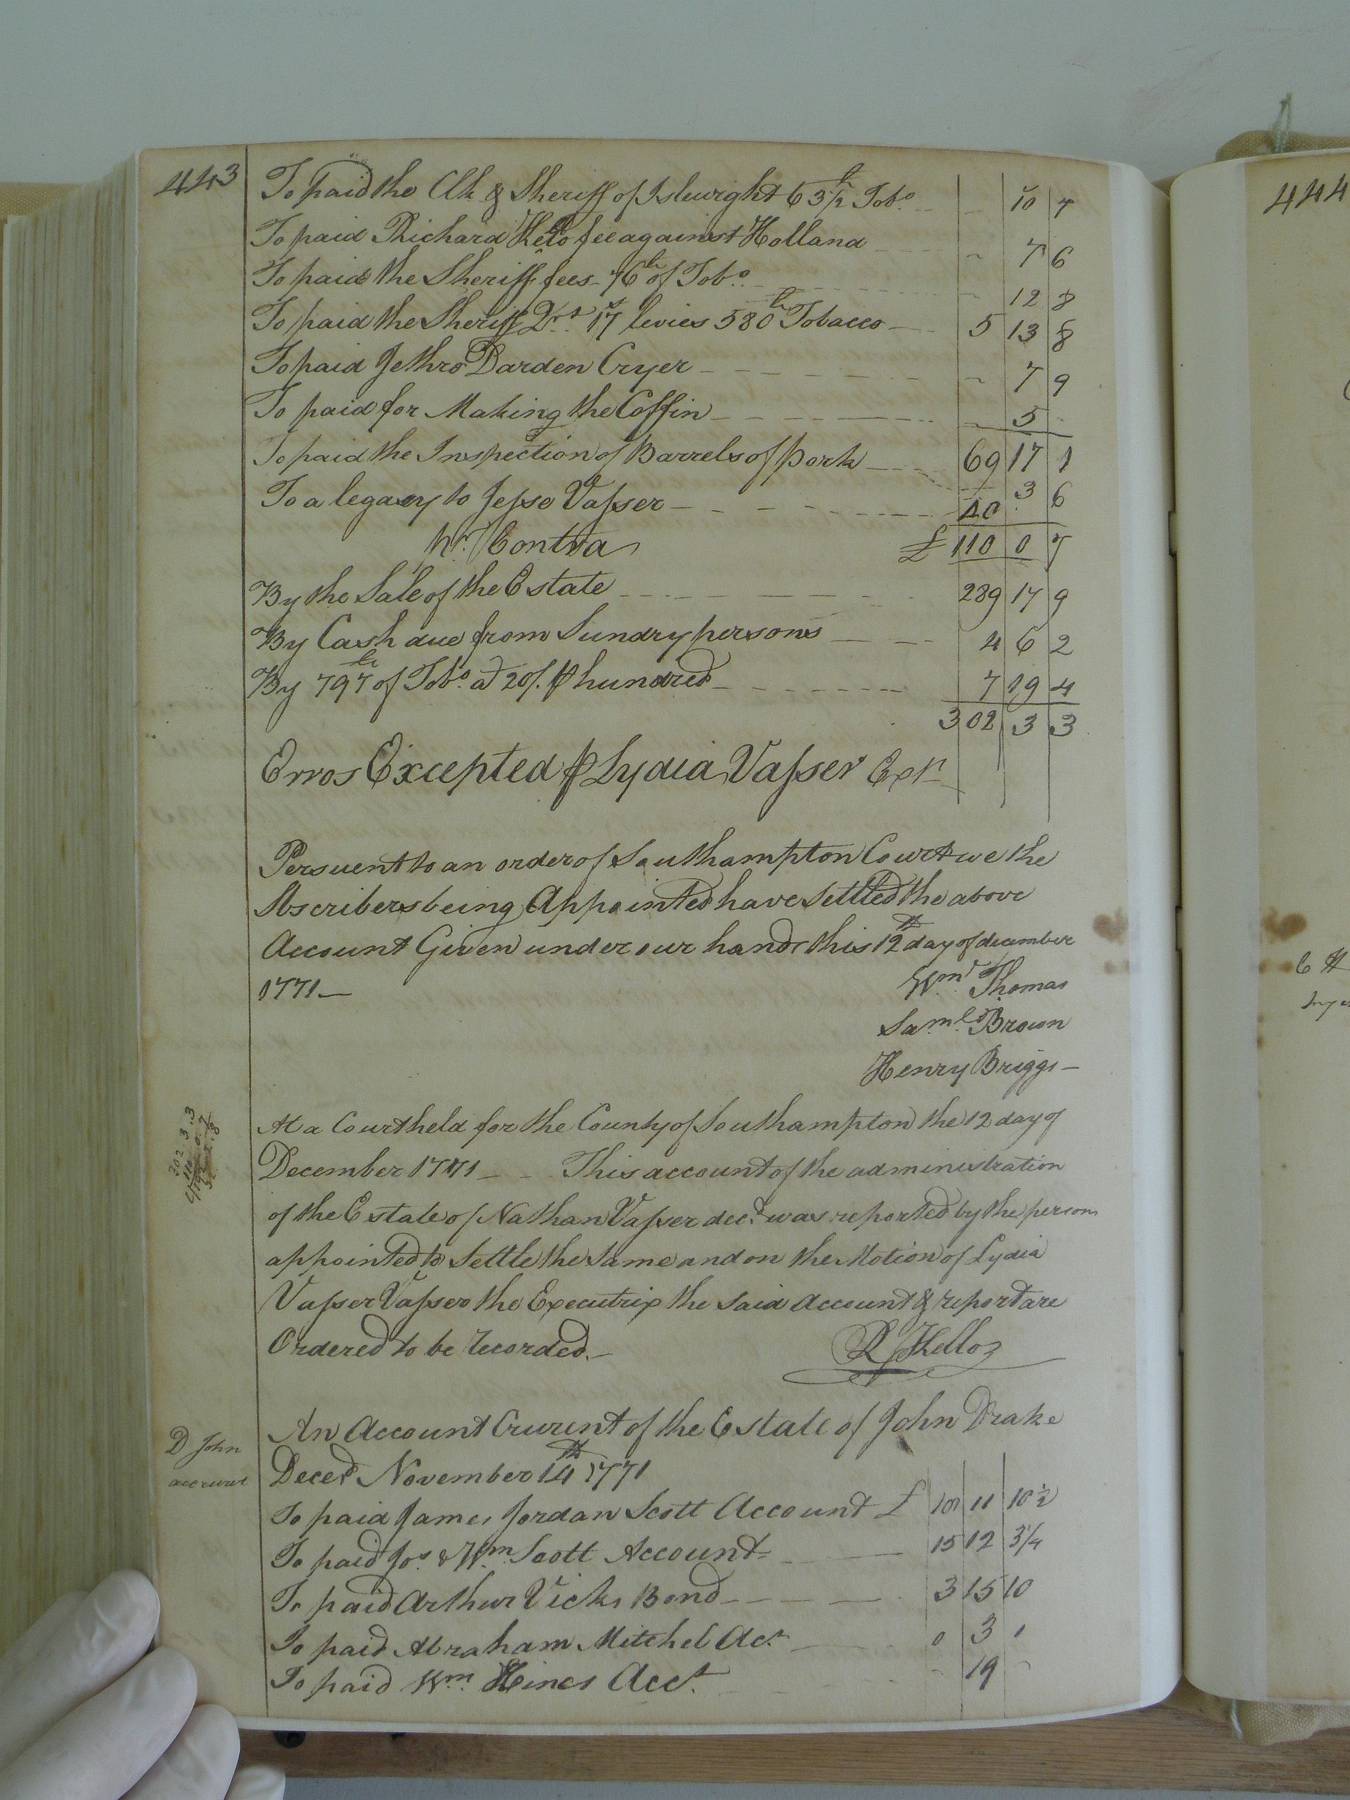 443
To paid the Clk & Sheriff of Islewight 63½ lb Tobo. 10 7
To paid Richard Kello fee against Holland 7 6
To paid the Sheriff fees 76 lb of Tobo. 12 8
To paid the Sheriff Dist. 17 levies 580 lb Tobacco 5 13 8
To paid Jethro Darden Cryer 7 9
To paid for Making the Coffin 5
To paid the Inspection of Barrels of Pork 69 17 1
3 6
To a legacy to Jesse Vasser 40
Pr. Contra £ 110 0 7
By the Sale of the Estate 289 17 9
By Cash due from Sundry persons 4 6 2
By 797 lb of Tobo. at 20/. P hundred 7 19 4
302 3 3
Erros Excepted P Lydia Vasser Exr
Persuent to an order of Southampton Court we the
Sbscribers being Appointed have Settled the above
Account Given under our hands this 12th day of december
1771
Wm. Thomas
Saml. Brown
Henry Briggs
At a Court held for the County of Southampton the 12 day of
December 1771 This account of the administration
of the Estate of Nathan Vasser decd. was reported by the persons
appointed to Settle the Same and on the Motion of Lydia
Vasser Vasser the Executrix the Said Account & report are
Ordered to be recorded.
R Kello
302 3 .3
110 0. 7
192 2. 8
D John
accurrent
An Account Currant of the Estate of John Drake
Deced November 14th 1771
To paid James Jordan Scott Account £ 101 11 10½
To paid Jos. & Wm. Scott Account 15 12 3¼
To paid Arthur Vicks Bond 3 15 10
To paid Abraham Mitchel Act. 0 3 1
To paid Wm. Hines Acct. 19
444